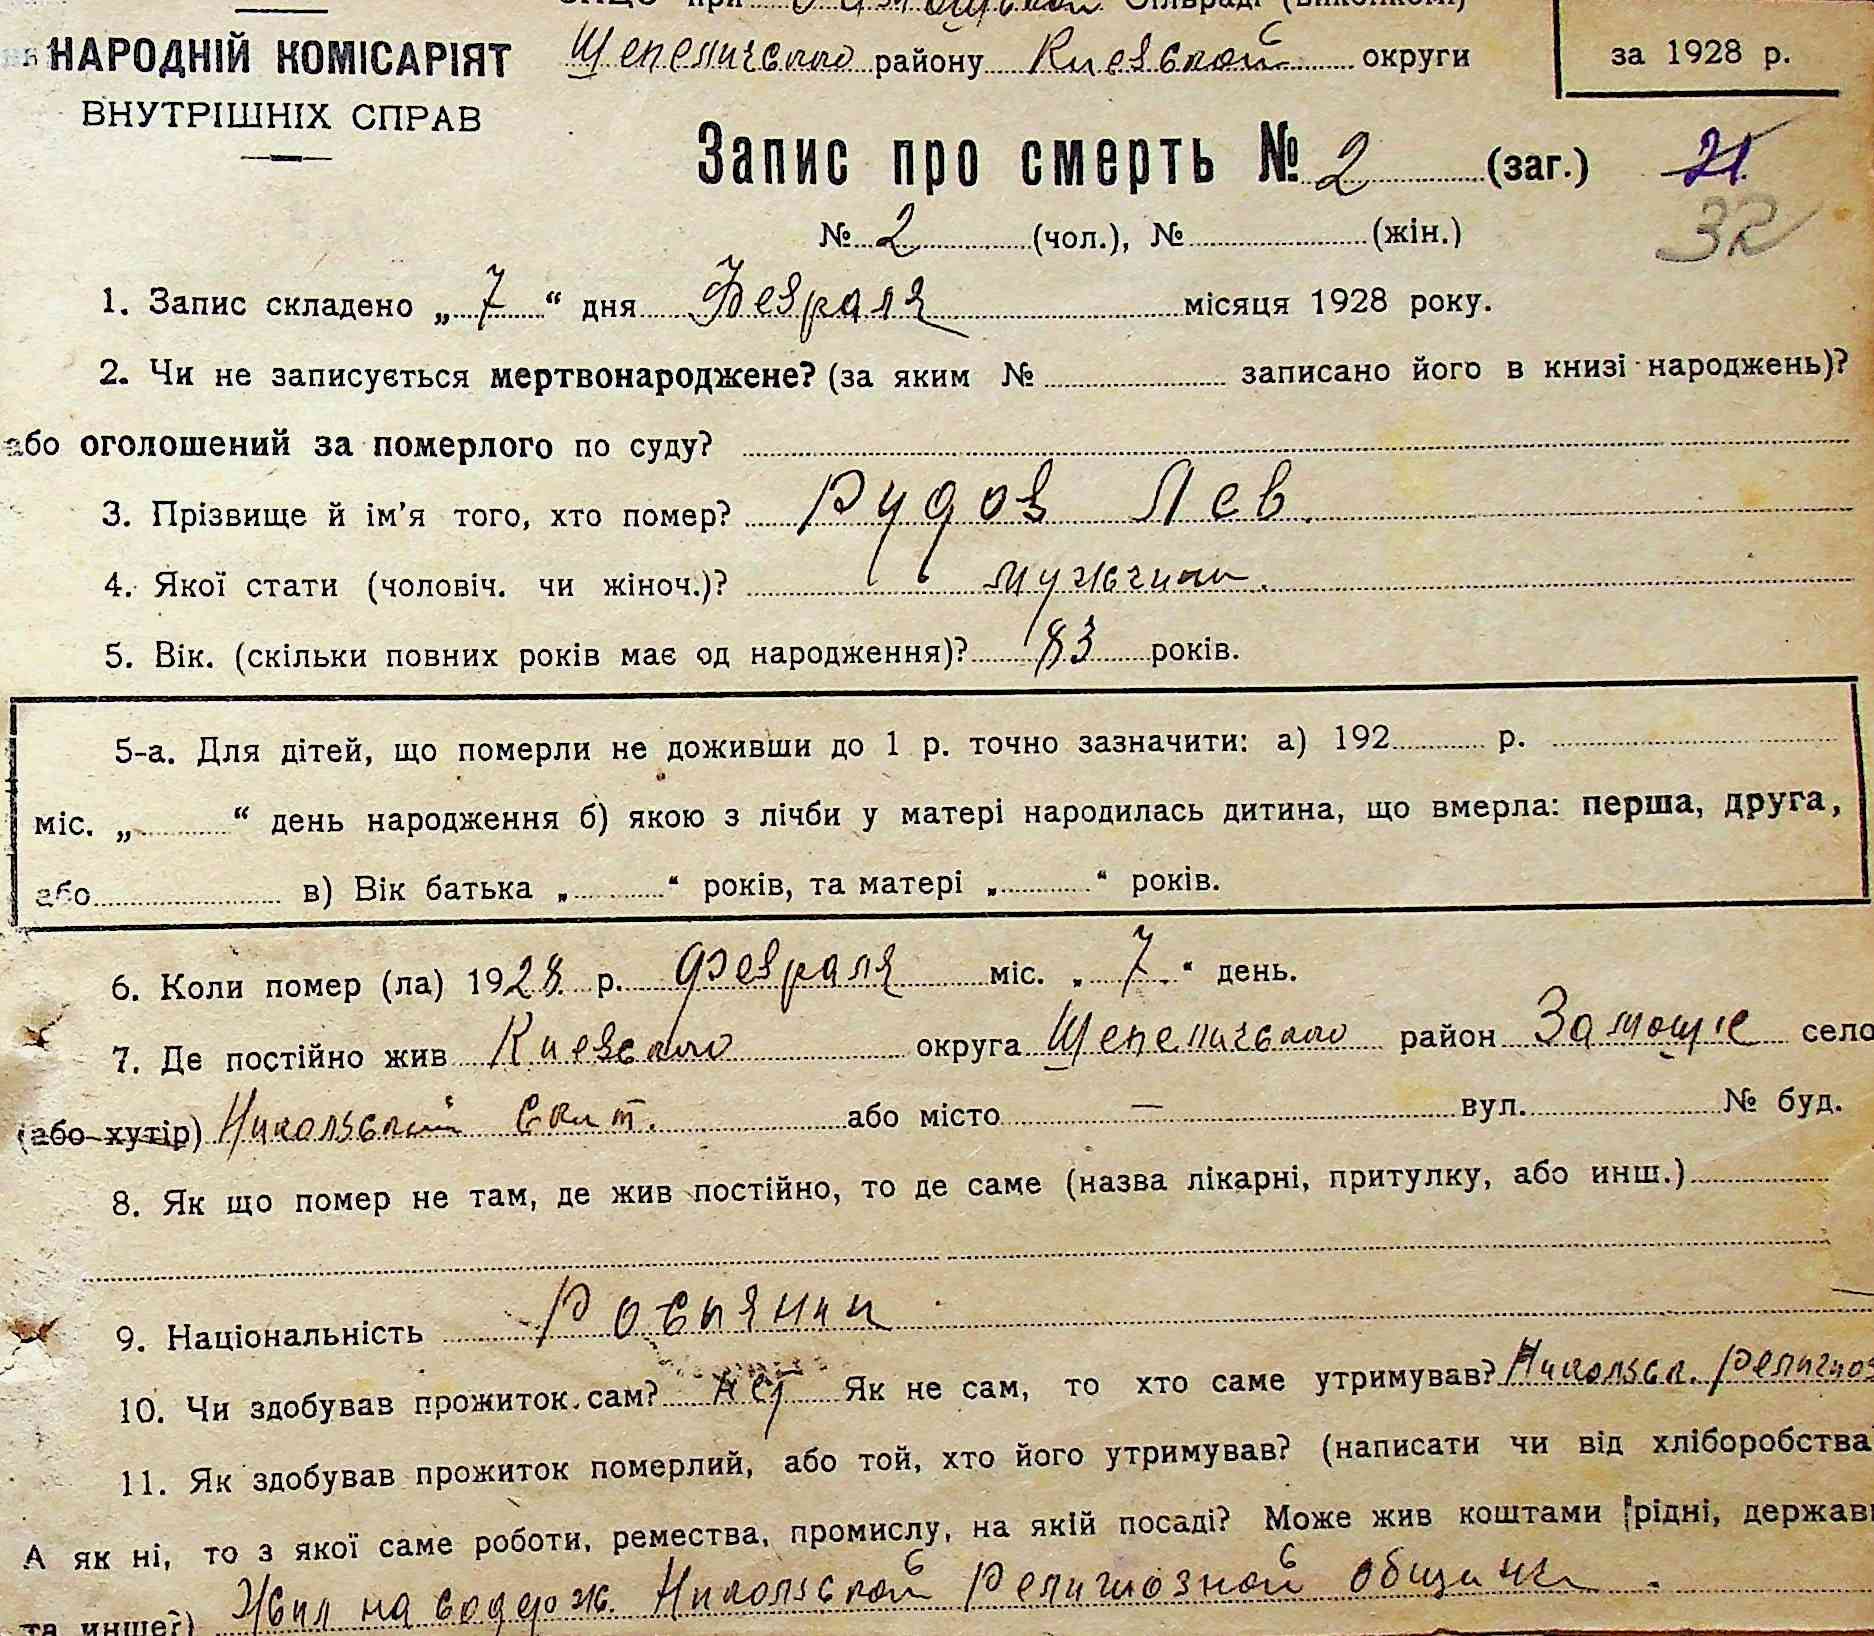 ЗАЦС при Замошской Сільраді (виконкомі)
НАРОДНІЙ КОМІСАРІЯТ
ВНУТРІШНІХ СПРАВ
Шепеличского району Киевской округи
за 1928 р.
Запис про смерть № 2 (заг.) 21
№ 2 (чол.), № (жін.) 32
1. Запис складено „ 7 “ дня Февраля місяця 1928 року.
2. Чи не записується мертвонароджене? (за яким № записано його в книзі народжень)?
або оголошений за померлого по суду?
3. Прізвище й ім'я того, хто помер? Рудов Лев
4. Якої стати (чоловіч. чи жіноч.)? мужчина.
5. Вік. (скільки повних років має од народження)? 83 років.
5-а. Для дітей, що померли не доживши до 1 р. точно зазначити: а) 192 р.
міс. „ “ день народження б) якою з лічби у матері народилась дитина, що вмерла: перша, друга,
або в) Вік батька „ “ років, та матері „ “ років.
6. Коли помер (ла) 1928 р. Февраля міс. „ 7 “ день.
7. Де постійно жив Киевского округа Шепеличского район Замощіе село
(або хутір) Никольский Скит. або місто — вул. № буд.
8. Як що помер не там, де жив постійно, то де саме (назва лікарні, притулку, або инш.)
9. Національність Росьянин
10. Чи здобував прожиток сам? Нет Як не сам, то хто саме утримував? Никольск. религиоз
11. Як здобував прожиток померлий, або той, хто його утримував? (написати чи від хліборобства
А як ні, то з якої саме роботи, ремества, промислу, на якій посаді? Може жив коштами рідні, держави
та инше?) Жил на содерж. Никольской Религиозной общины.